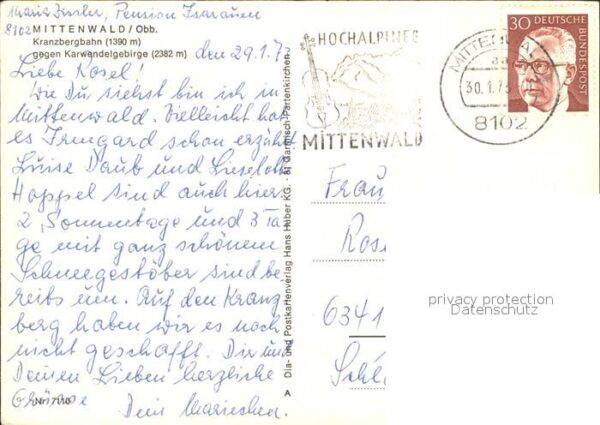 Pension Isarauen
8102 MITTENWALD / Obb.
Kranzbergbahn (1390 m)
gegen Karwendelgebirge (2382 m)
den 29.1.73
Liebe Rosel!
Wie Du siehst bin ich in
Mittenwald. Vielleicht hat
es Irmgard schon erzähl
Luise Daub und Lieselott
Hoppel sind auch hier
2 Sonnentage und 3 Ta
ge mit ganz schönem
Schneegestöber sind be
reits um. Auf den Kranz
berg haben wir es noch
nicht geschafft. Dir und
Deinen Lieben herzliche
Grüsse Dein Mariechen.
Nr. 7110
A Dia- und Postkartenverlag Hans Huber KG. · 81 Garmisch-Partenkirchen
HOCHALPINES
MITTENWALD
MITTENWA
aa
30.1.73
8102
30 DEUTSCHE
BUNDESPOST
Frau
Rose
6341
privacy protection
Datenschutz